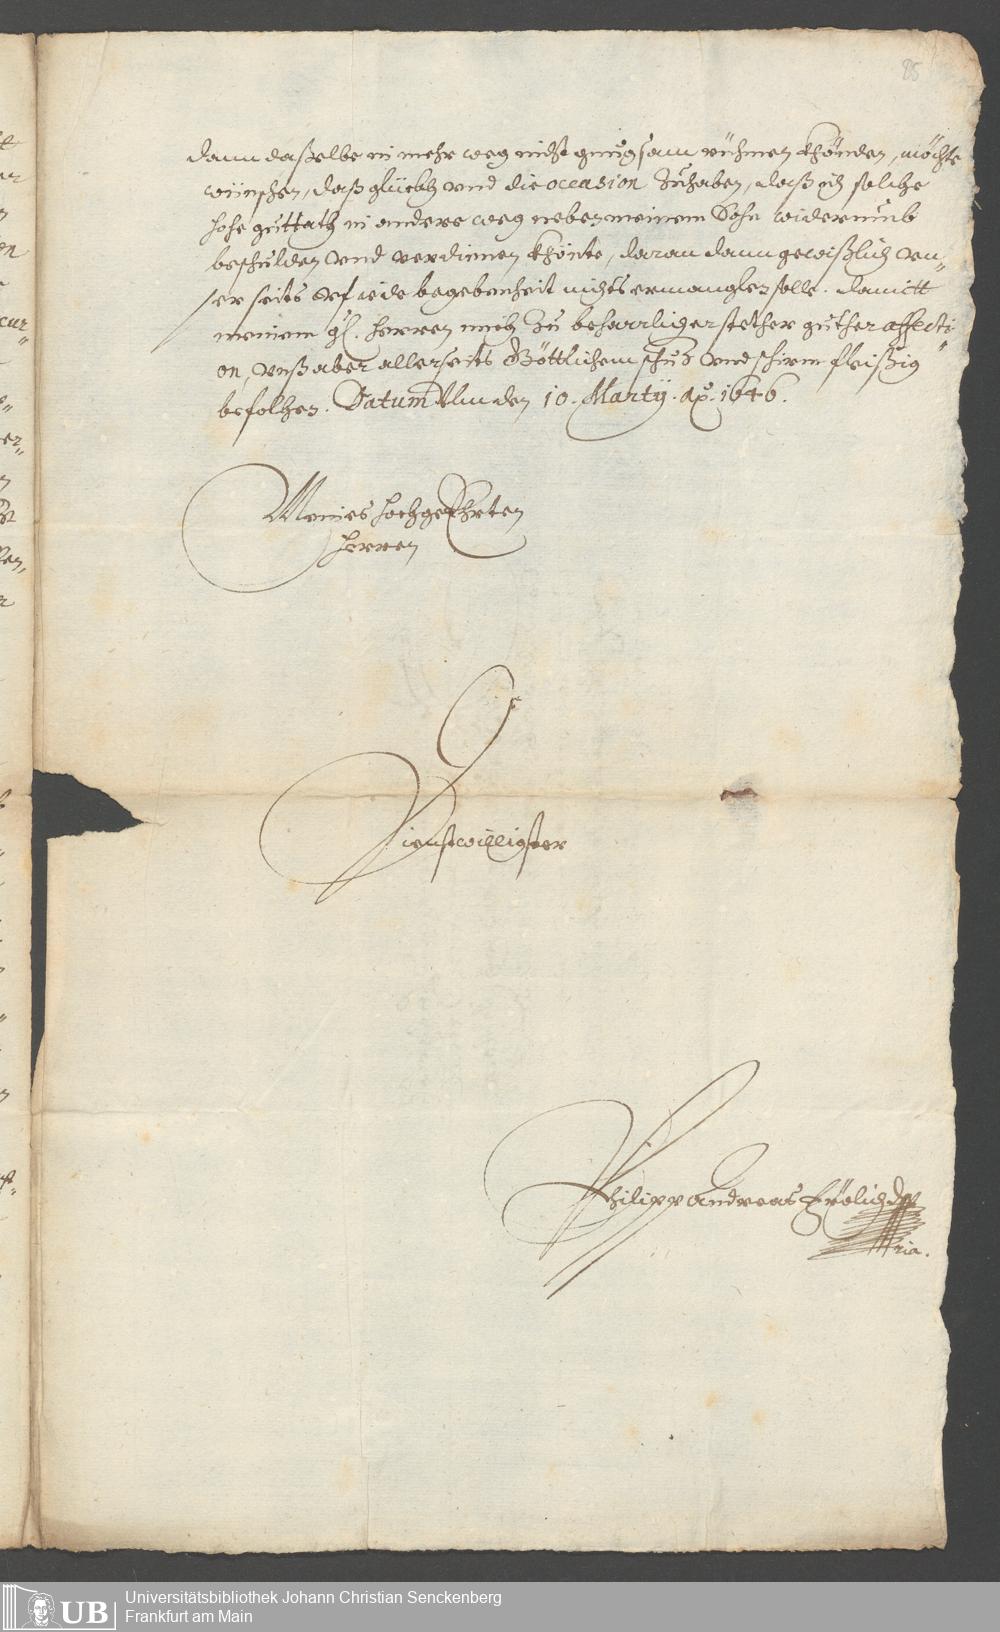 85
dann daßelbe in mehr weg nicht gnugsam rühmen khönden, möchte
wünschen, daß glückh vnd die occasion zuhaben, daß ich solche
hohe gutttath in andere weg neben meinem Sohn widerumb
beschulden vnd verdienen khönte, daran dann gewißlich vn„
ser seits vf iede begebenheit nichts ermanglen solle. Damitt
meinem gl. Herren mich zu beharrlicher stether guther affecti„
on, vnß aber allerseits Göttlichem schuz vnd schirm fleißig
befolhen. Datum Ulm den 10. Martij. Ao. 1646.
Meines hochgeEhrten
Herren
Dienstwilligster
Philipp Andreas Frölich
mppria.
Universitätsbibliothek Johann Christian Senckenberg
Frankfurt am Main
UB